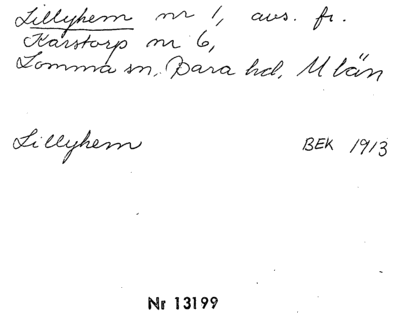 Lillyhem nr 1, avs. fr.
Karstorp nr 6,
Lomma sn, Bara hd, M län
Lillyhem BEK 1913
Nr 13199